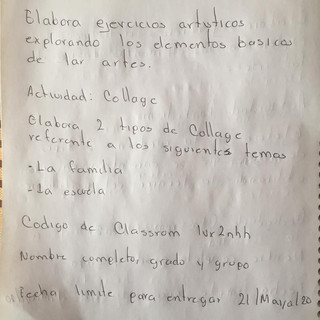 Elabora ejercicios artisticos
explorando los elementos basicos
de las artes.
Actividad: Collage
Elabora 2 tipos de Collage
referente a los siguientes temas
-La familia
-La escuela
Codigo de Classrom lur2nhh
Nombre completo, grado y grupo
Fecha limite para entregar 21/Mayo/20